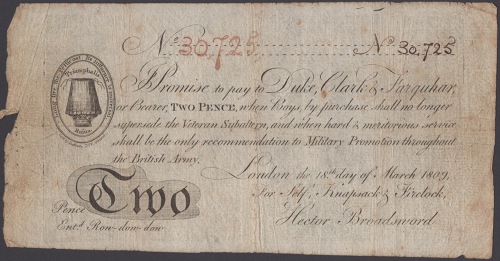 No. 30,725 No. 30,725
Triumphale
I Promise to pay to Duke, Clark & Farquhar,
or Bearer, TWO PENCE, when Boys, by purchase shall no longer
supersede the Veteran Subaltern, and when hard & meritorious service
shall be the only recommendation to Military Promotion throughout
the British Army.
London the 18th. day of March 1809,
For Self, Knapsack & Firelock,
Pence Two
Hector Broadsword
Entd. Row-dow-dow